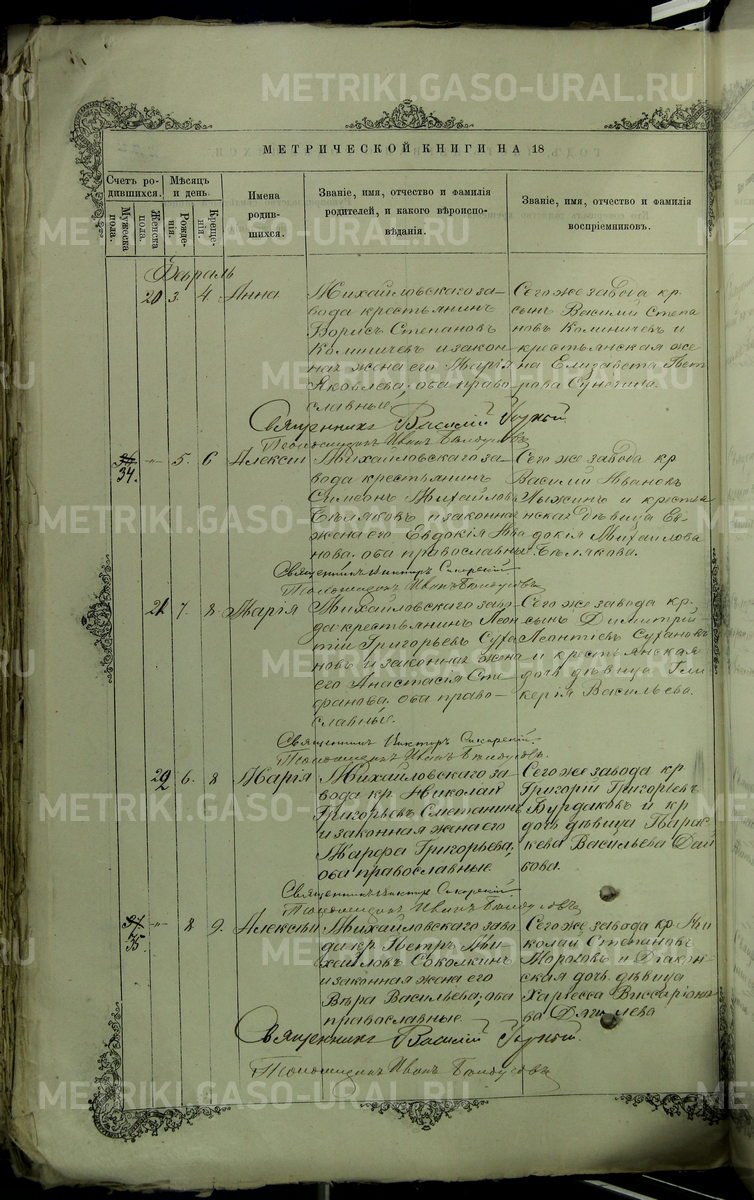 METRIKI.GASO-URAL.RU
МЕТРИЧЕСКОЙ КНИГИ НА 18
Счетъ ро-
дившихся.
Мужеска
пола.
Женска
пола.
Мѣсяцъ
и день.
Рожде-
нія.
Креще-
нія.
Имена
родив-
шихся.
Званіе, имя, отчество и фамилія
родителей, и какого вѣроиспо-
вѣданія.
Званіе, имя, отчество и фамилія
воспріемниковъ.
Февраль
20 3. 4. Анна
Михайловскаго за-
вода крестьянинъ
Борисъ Степановъ
и закон
ная жена его Марія
Яковлева, оба право
славные
Сего же завода кр.
сынъ Василій Степа
новъ и
крестьянская же
на Елизавета Пет
рова
Священникъ Василій
Псаломщикъ Иванъ
34. 5. 6 Алексій
Михайловскаго за-
вода крестьянинъ
Симеонъ Михайловъ
Бѣляковъ и законная
жена его Евдокія Ива
нова. оба православные
Сего же завода кр.
Василій Ивановъ
и крестья
нская дѣвица Ев
докія Михайлова
Бѣлякова.
Священникъ Викторъ
Псаломщикъ Иванъ
21 7. 8 Марія
Михайловскаго заво
да крестьянинъ Леон
тій Григорьевъ Суха
новъ и законная жена
его Анастасія Сте
фанова. оба право-
славные.
Сего же завода кр.
сынъ Димитрій
Леонтіевъ Сухановъ
и крестьянская
дочь дѣвица Гли
керія Васильева.
Священникъ Викторъ
Псаломщикъ Иванъ
22 6. 8 Марія
Михайловскаго за-
вода кр. Николай
Григорьевъ Сметанинъ
и законная жена его
Марфа Григорьева,
оба православные
Сего же завода кр
Григорій Григорьевъ
Бурдаковъ и кр
дочь дѣвица Парас
кева Васильева
Священникъ Викторъ
Псаломщикъ Иванъ
35 8 9. Алексѣй
Михайловскаго заво
да кр. Петръ Ми
хайловъ Соколкинъ
и законная жена его
Вѣра Васильева, оба
православные
Сего же завода кр. Ни
колай Степановъ
Морозовъ и Діакон
ская дочь дѣвица
Виссаріоно
ва Дягилева
Священникъ Василій
Псаломщикъ Иванъ